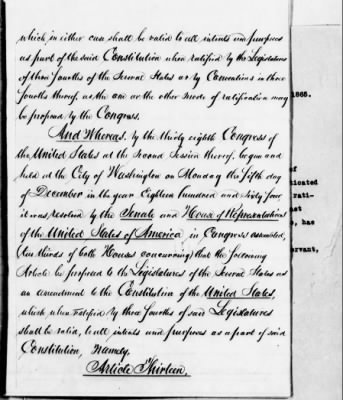 which in either case shall be valid to all intents and purposes
as part of the said Constitution when ratified by the Legislatures
of three fourths of the Several States or by Conventions in three
fourths thereof, as the one or the other mode of ratification may
be proposed by the Congress.
And Whereas. by the thirty eighth Congress of
the United States at the Second Session thereof, begun and
held at the City of Washington on Monday the fifth day
of December in the year Eighteen hundred and Sixty four
it was resolved by the Senate and House of Representatives
of the United States of America, in Congress assembled,
(two thirds of both Houses concurring) that the following
Article be proposed to the Legislatures of the Several States as
an amendment to the Constitution of the United States,
which when ratified by three fourths of said Legislatures
shall be valid, to all intents and purposes as a part of said
Constitution, Namely,
Article Thirteen.
1865.
of
icated
rati-
at
, has
ervant,